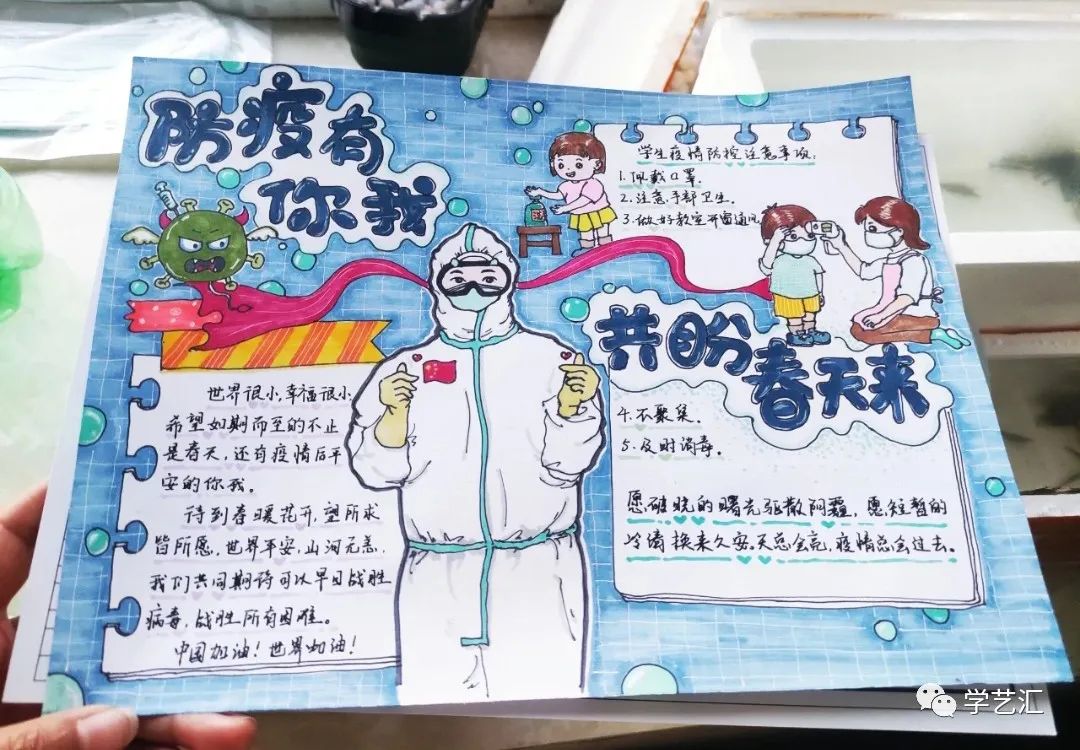 防疫有
你我
学生疫情防控注意事项:
1.佩戴口罩.
2.注意手部卫生.
3.做好教室开窗通风
共盼
春天来
4.不聚集.
5.及时消毒.
愿破晓的曙光驱散阴霾,愿短暂的
冷清换来久安.天总会亮,疫情总会过去.
世界很小,幸福很小
希望如期而至的不止
是春天,还有疫情后平
安的你我。
待到春暖花开,望所求
皆所愿,世界平安,山河无恙.
我们共同期待可以早日战胜
病毒,战胜所有困难。
中国加油!世界加油!
学艺汇